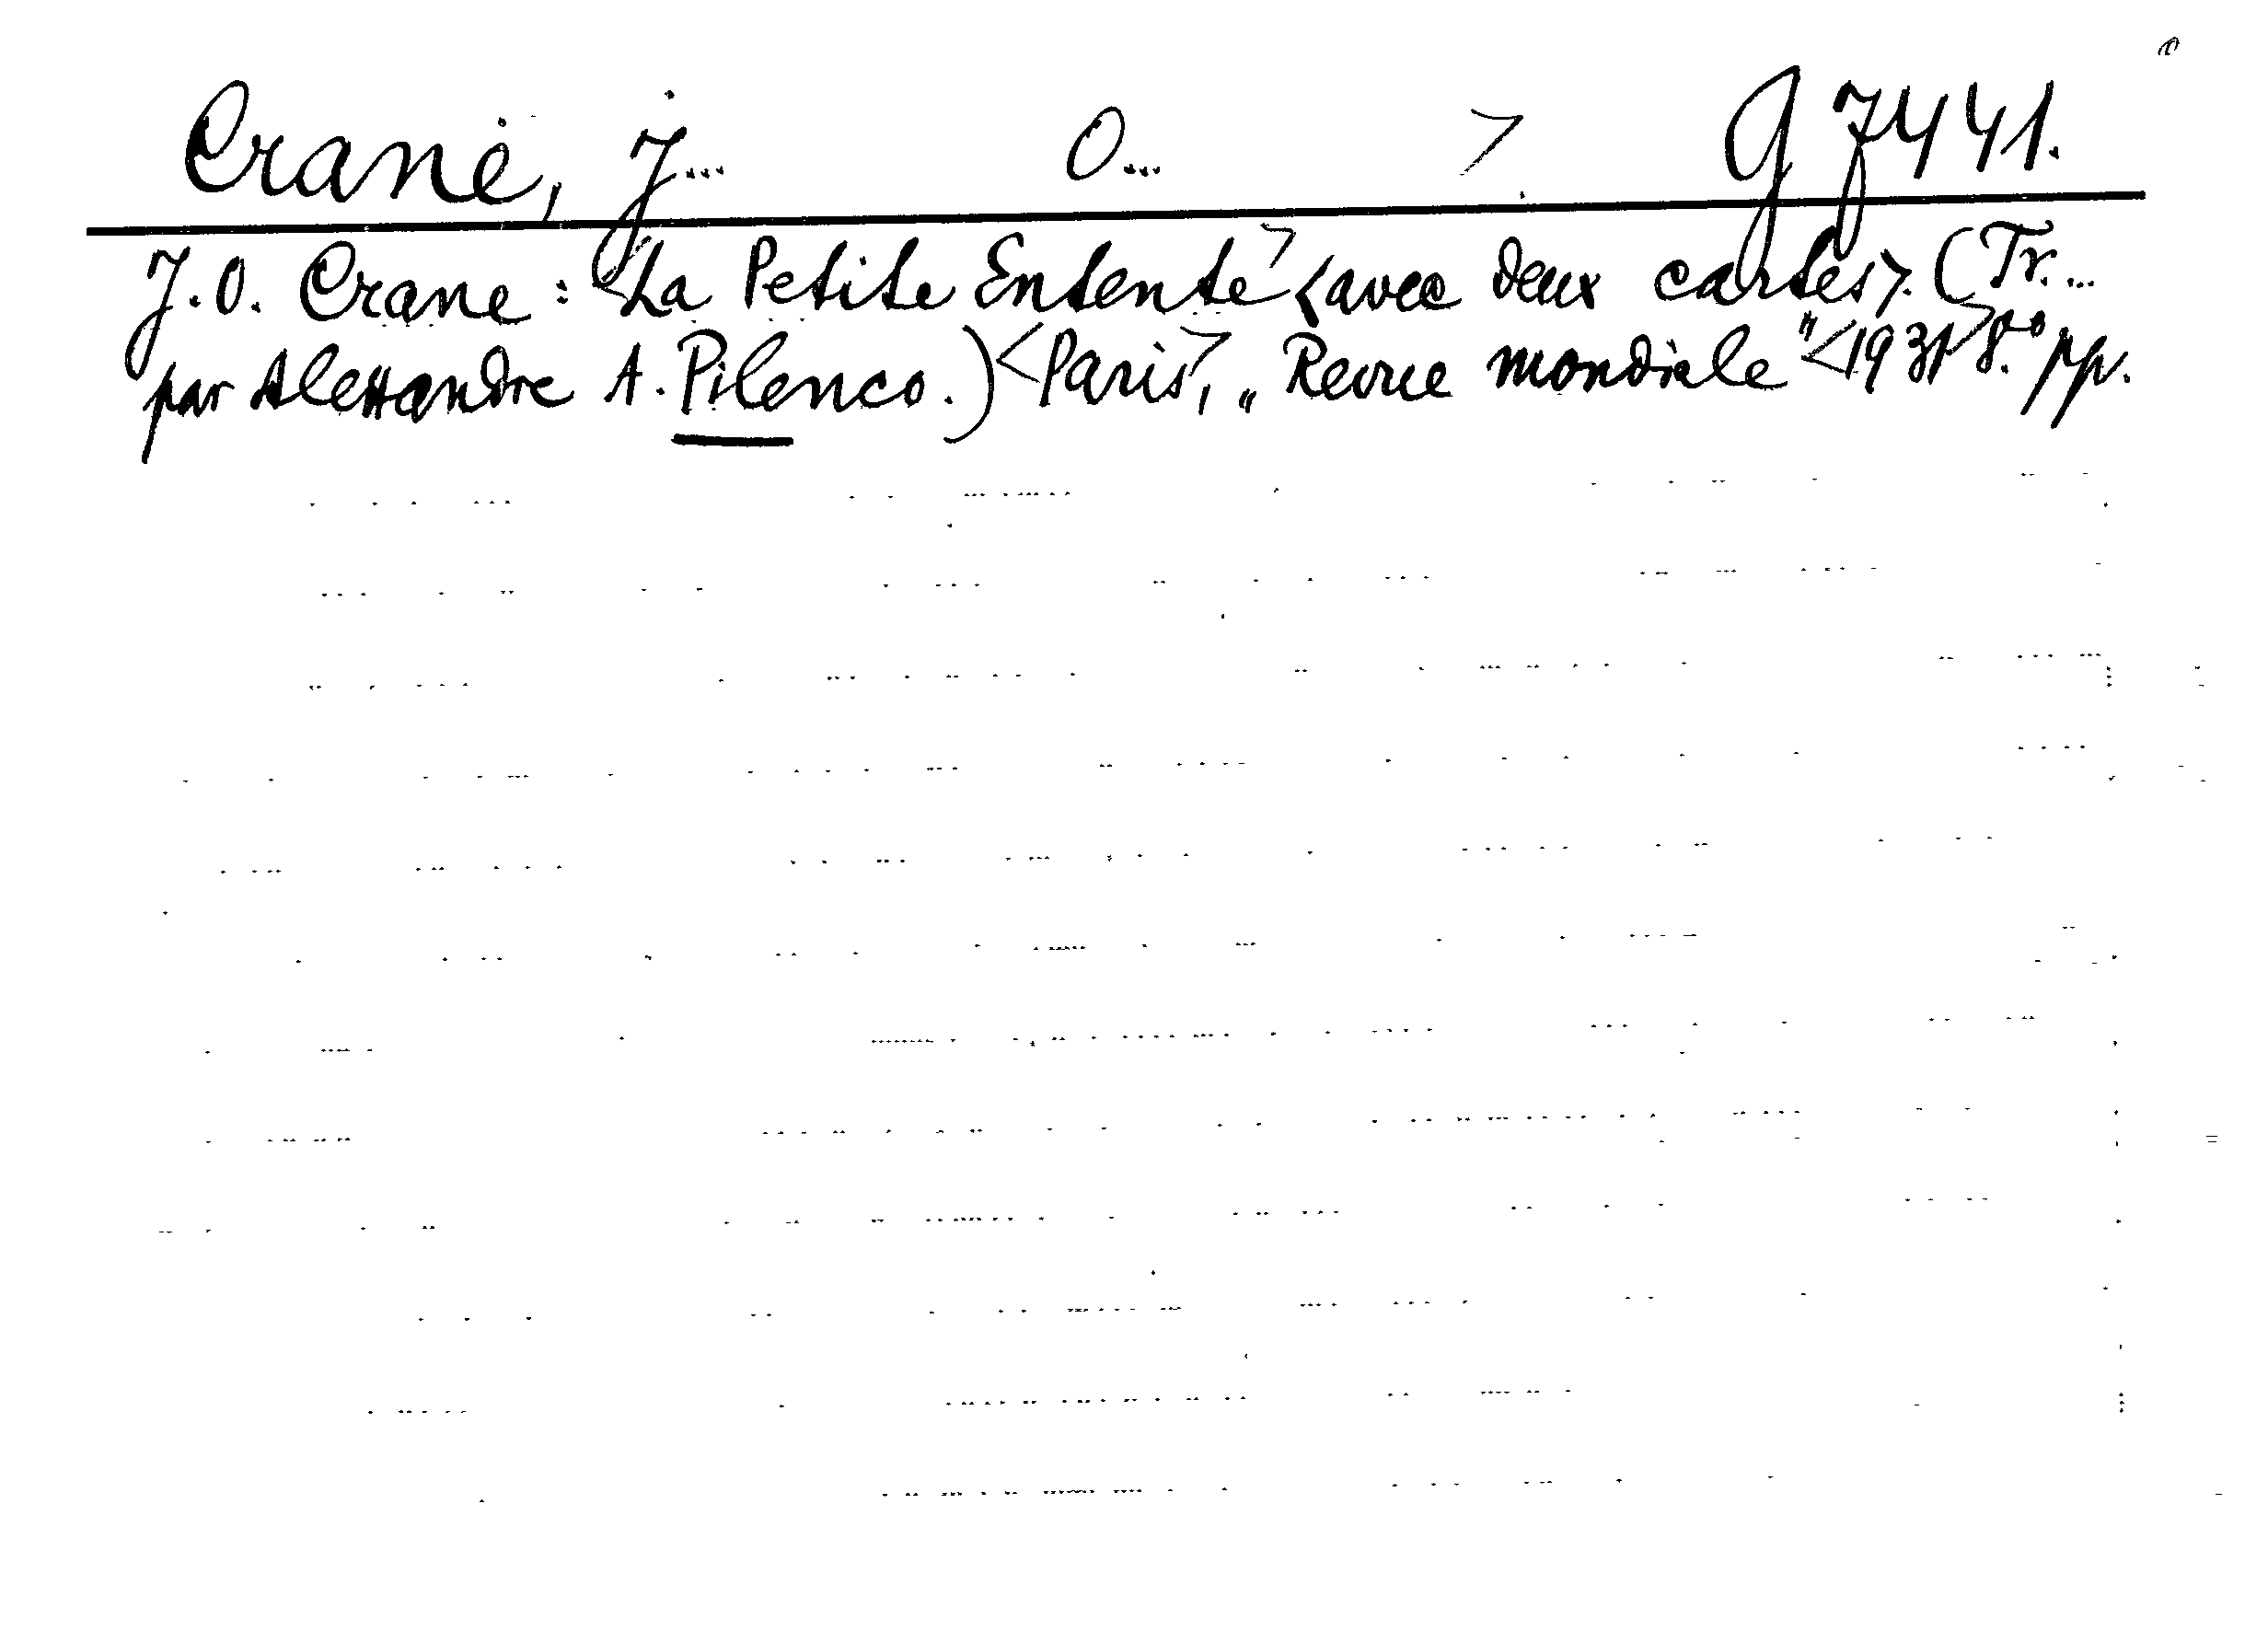 Crane, J... O... > G 7441.
J.O. Crane: <La Petite Entente> <avec deux cartes>. (Tr....
par Alexandre A. Pilenco.) <Paris>, „Revue mondiale" <1931> 8.° pp.